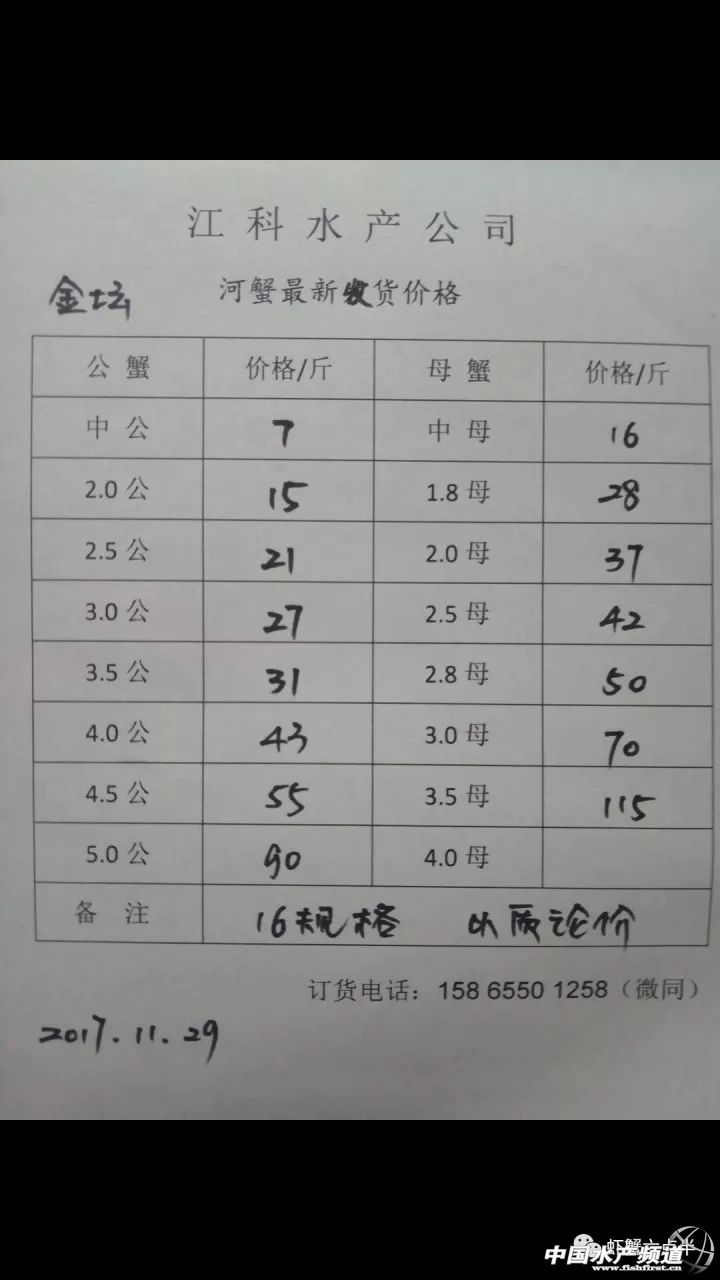 江科水产公司
金坛 河蟹最新发货价格
公蟹 价格/斤 母蟹 价格/斤
中公 7 中母 16
2.0公 15 1.8母 28
2.5公 21 2.0母 37
3.0公 27 2.5母 42
3.5公 31 2.8母 50
4.0公 43 3.0母 70
4.5公 55 3.5母 115
5.0公 90 4.0母
备注 16规格 以质论价
订货电话：158 6550 1258（微同）
2017.11.29
虾蟹六点半
中国水产频道
www.fishfirst.cn